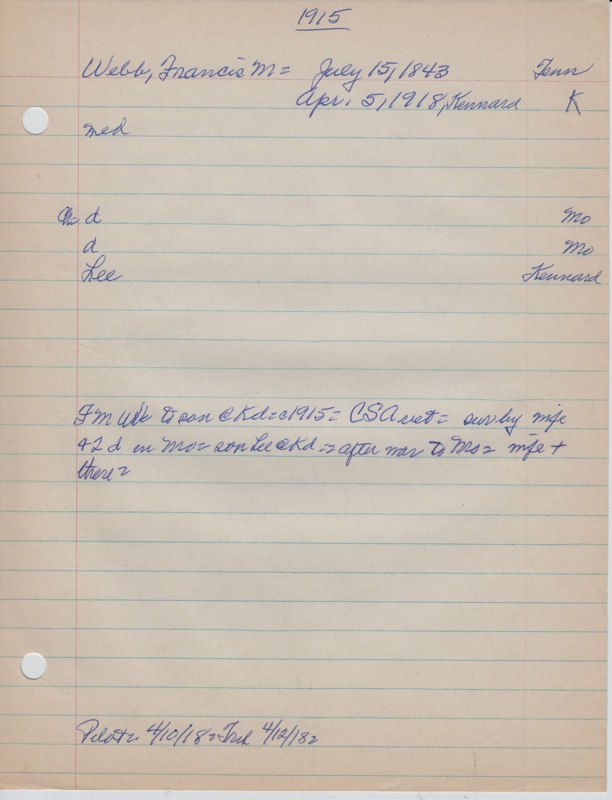 1915
Webb, Francis M = July 15, 1843 Tenn
Apr. 5, 1918, Kennard K
med
Ch = d Mo
d Mo
Lee Kennard
F M Webb to son @ Kd = c1915 = CSA vet = sur by wife
+ 2 d in Mo = son Lee @ Kd = after war to Mo = wife +
there =
Pilot = 4/10/18 = Trib 4/12/18 =